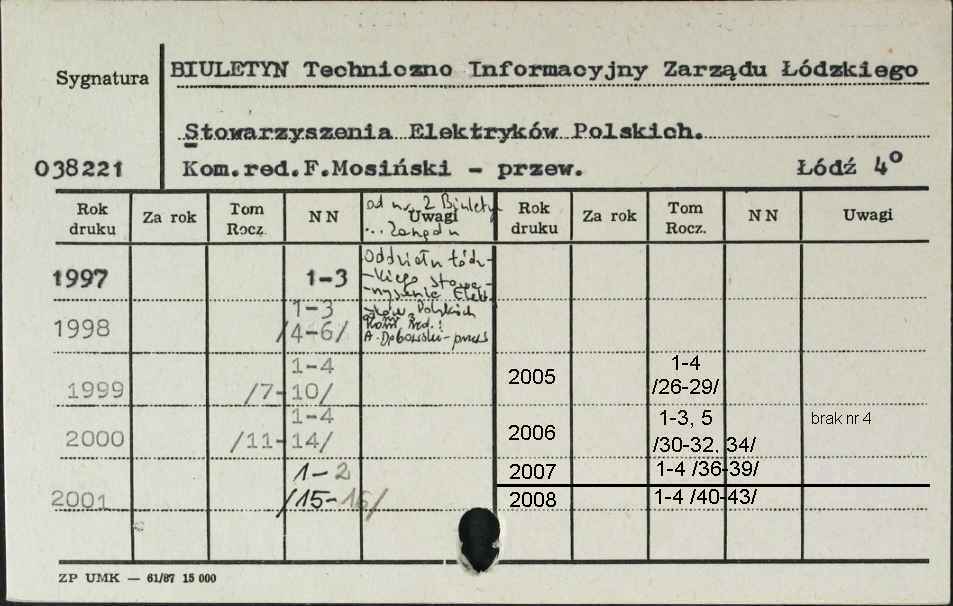 BIULETYN Techniczno Informacyjny Zarządu Łódzkiego
Sygnatura
Stowarzyszenia Elektryków Polskich.
038221 Kom.red.F.Mosiński - przew. Łódź 4º
Rok druku Za rok Tom Rocz. NN Uwagi Rok druku Za rok Tom Rocz. NN Uwagi
od nr. 2 Biuletyn
... Zarządu
Oddziału Łódz-
-kiego Stowa-
-rzyszenia Elekt
ryków Polskich
Kom. red.:
1997 1-3
1998 1-3
/4-6/
1999 1-4
/7-10/
2000 1-4
/11-14/
2001 1-2
/15-16/
2005 1-4
/26-29/
2006 1-3, 5 brak nr 4
/30-32, 34/
2007 1-4 /36-39/
2008 1-4 /40-43/
ZP UMK — 61/87 15 000